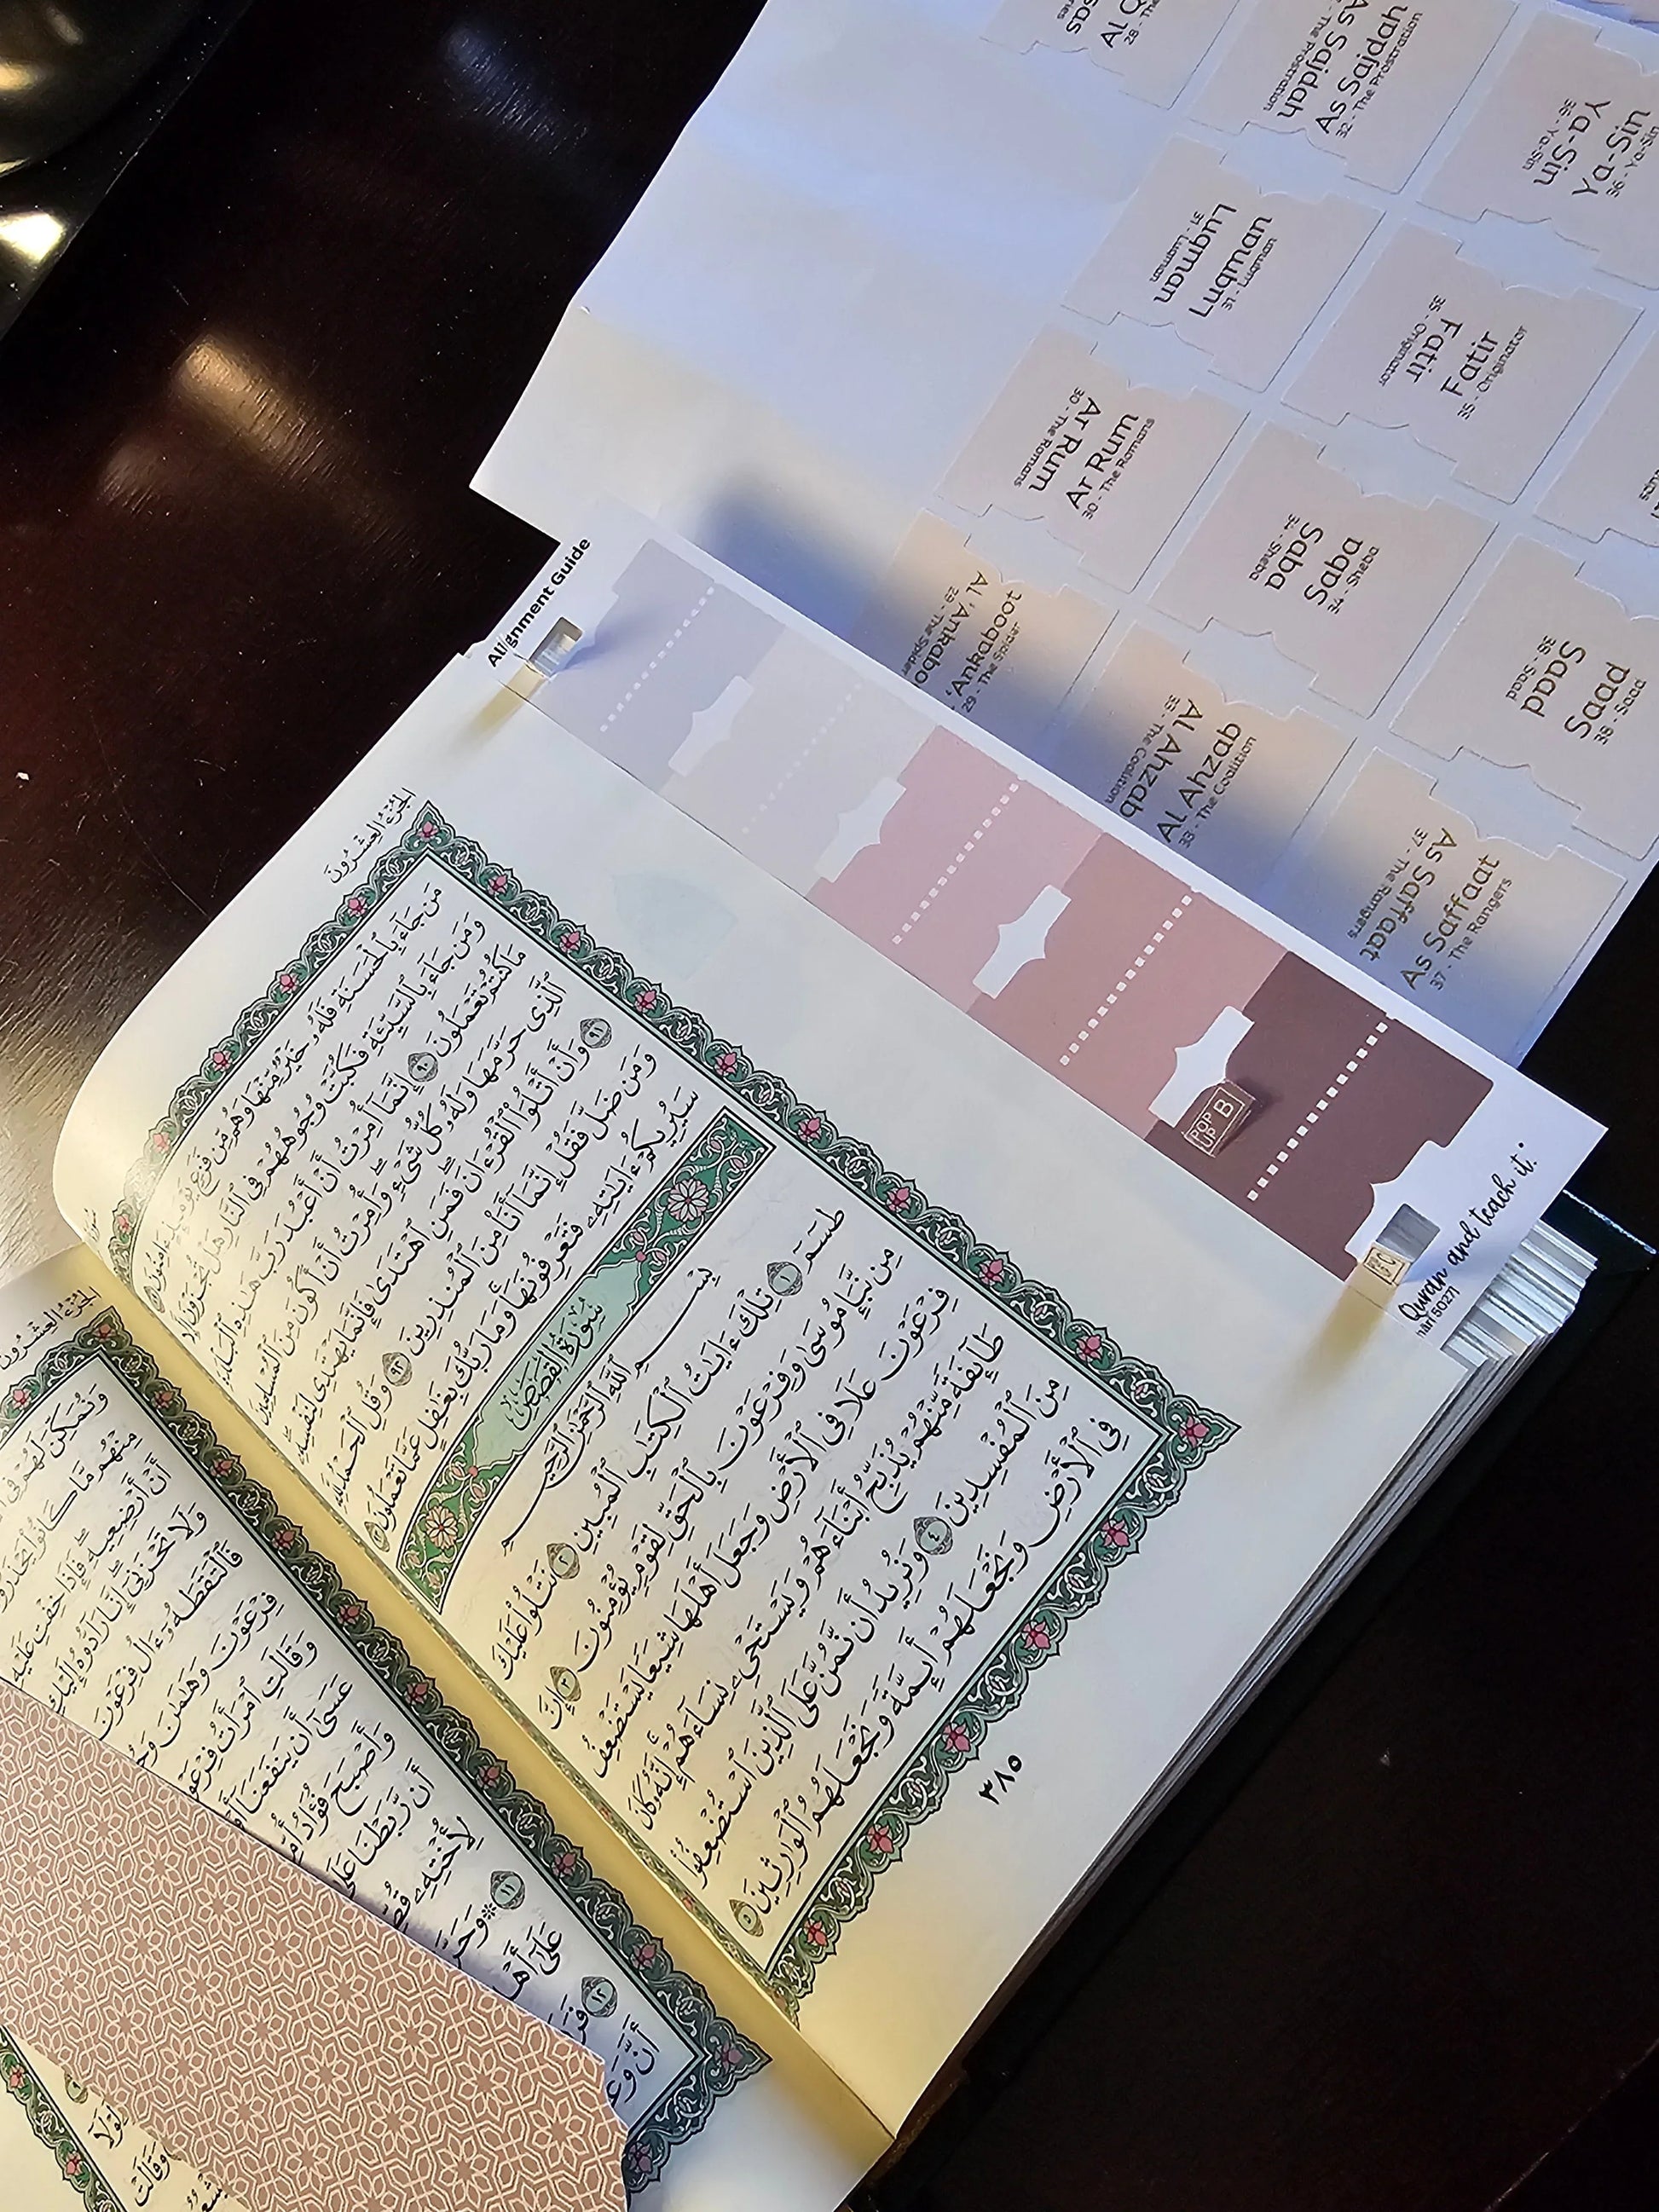 As Sajdah
32 - The Prostration
As Sajdah
The Prostration
Ya-Sin
36 - Ya-Sin
Ya-Sin
36 - Ya-Sin
Luqman
31 - Luqman
Luqman
31 - Luqman
Fatir
35 - Originator
Fatir
35 - Originator
Ar Rum
30 - The Romans
Ar Rum
30 - The Romans
Saba
34 - Sheba
Saba
34 - Sheba
Saad
38 - Saad
Saad
38 - Saad
'Ankaboot
29 - The Spider
29 - The Spider
Al Ahzab
33 - The Coalition
Al Ahzab
33 - The Coalition
As Saffaat
37 - The Rangers
As Saffaat
37 - The Rangers
Alignment Guide
POP UP B
Quran and teach it."
الجزء العشرون
مَن جَآءَ بِٱلْحَسَنَةِ فَلَهُۥ خَيْرٌ مِّنْهَا وَهُم مِّن فَزَعٍ يَوْمَئِذٍ ءَامِنُونَ ٨٩
وَمَن جَآءَ بِٱلسَّيِّئَةِ فَكُبَّتْ وُجُوهُهُمْ فِى ٱلنَّارِ هَلْ تُجْزَوْنَ إِلَّا
مَا كُنتُمْ تَعْمَلُونَ ٩٠ إِنَّمَآ أُمِرْتُ أَنْ أَعْبُدَ رَبَّ هَٰذِهِ ٱلْبَلْدَةِ
ٱلَّذِى حَرَّمَهَا وَلَهُۥ كُلُّ شَىْءٍ وَأُمِرْتُ أَنْ أَكُونَ مِنَ ٱلْمُسْلِمِينَ
٩١ وَأَنْ أَتْلُوَا۟ ٱلْقُرْءَانَ فَمَنِ ٱهْتَدَىٰ فَإِنَّمَا يَهْتَدِى لِنَفْسِهِۦ
وَمَن ضَلَّ فَقُلْ إِنَّمَآ أَنَا۠ مِنَ ٱلْمُنذِرِينَ ٩٢ وَقُلِ ٱلْحَمْدُ لِلَّهِ
سَيُرِيكُمْ ءَايَٰتِهِۦ فَتَعْرِفُونَهَا وَمَا رَبُّكَ بِغَٰفِلٍ عَمَّا تَعْمَلُونَ ٩٣
سُورَةُ القَصَصِ
بِسْمِ ٱللَّهِ ٱلرَّحْمَٰنِ ٱلرَّحِيمِ
طسٓمٓ ١ تِلْكَ ءَايَٰتُ ٱلْكِتَٰبِ ٱلْمُبِينِ ٢ نَتْلُوا۟ عَلَيْكَ
مِن نَّبَإِ مُوسَىٰ وَفِرْعَوْنَ بِٱلْحَقِّ لِقَوْمٍ يُؤْمِنُونَ ٣ إِنَّ
فِرْعَوْنَ عَلَا فِى ٱلْأَرْضِ وَجَعَلَ أَهْلَهَا شِيَعًا يَسْتَضْعِفُ
طَآئِفَةً مِّنْهُمْ يُذَبِّحُ أَبْنَآءَهُمْ وَيَسْتَحْىِۦ نِسَآءَهُمْ إِنَّهُۥ كَانَ
مِنَ ٱلْمُفْسِدِينَ ٤ وَنُرِيدُ أَن نَّمُنَّ عَلَى ٱلَّذِينَ ٱسْتُضْعِفُوا۟
فِى ٱلْأَرْضِ وَنَجْعَلَهُمْ أَئِمَّةً وَنَجْعَلَهُمُ ٱلْوَٰرِثِينَ ٥
٣٨٥
الجزء العشرون
وَنُمَكِّنَ لَهُمْ فِى
مِنْهُم مَّا كَانُوا۟ يَحْذَرُونَ
أَنْ أَرْضِعِيهِ فَإِذَا خِفْتِ عَلَيْهِ
وَلَا تَحْزَنِىٓ إِنَّا رَآدُّوهُ إِلَيْكِ
فَٱلْتَقَطَهُۥٓ ءَالُ فِرْعَوْنَ
فِرْعَوْنَ وَهَٰمَٰنَ
وَقَالَتِ ٱمْرَأَتُ فِرْعَوْنَ
عَسَىٰٓ أَن يَنفَعَنَآ
وَأَصْبَحَ فُؤَادُ
أَن رَّبَطْنَا عَلَىٰ
لِأُخْتِهِۦ
١١ وَحَرَّمْنَا
عَلَىٰٓ أَهْلِ
١٢